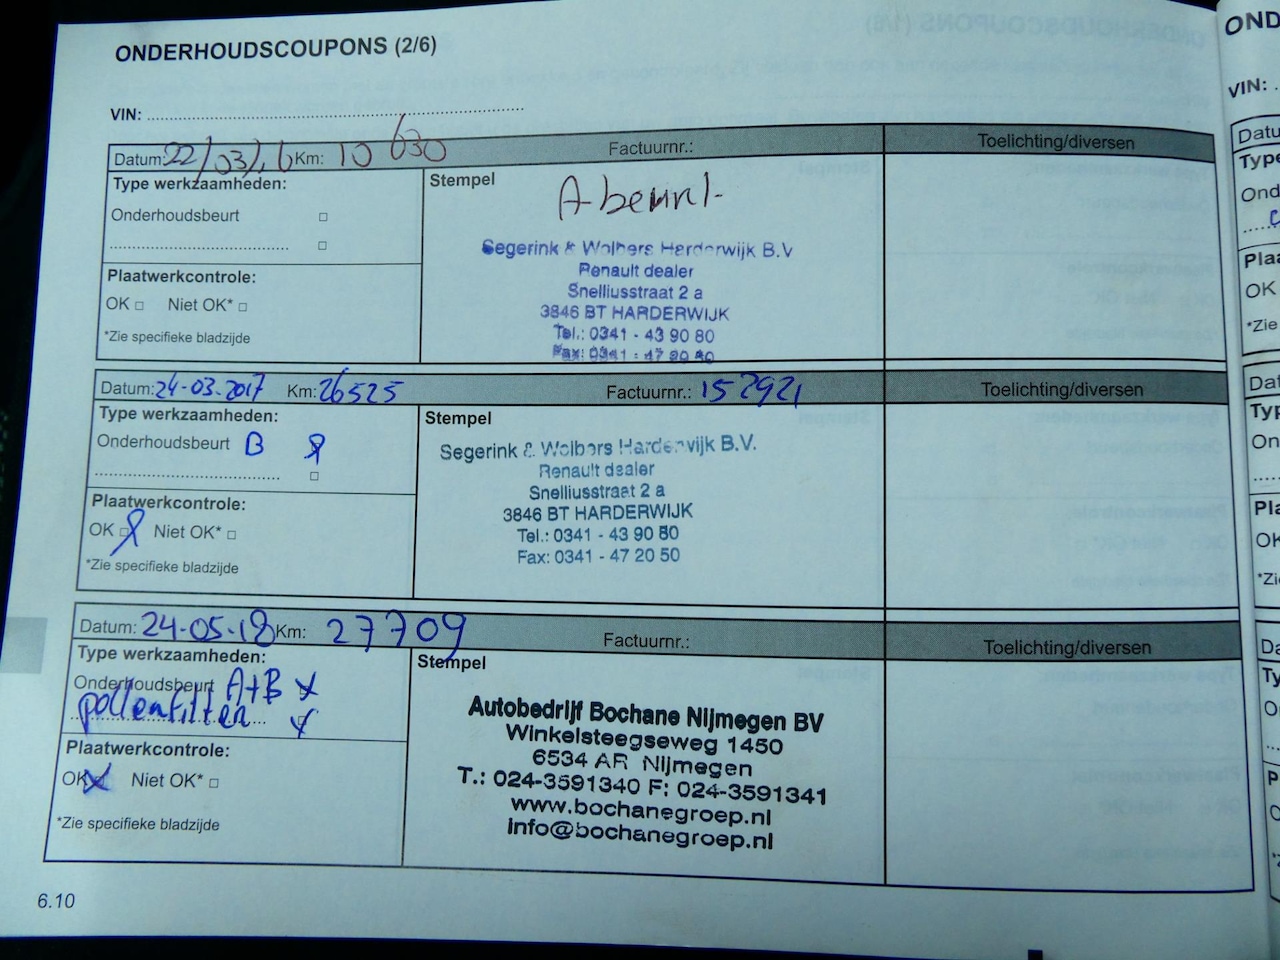 ONDERHOUDSCOUPONS (2/6)
VIN:
Datum: 22/03/16 Km: 10 630 Factuurnr.: Toelichting/diversen
Type werkzaamheden:
Stempel
A beurt
Onderhoudsbeurt □
□
Segerink & Wolbers Harderwijk B.V
Renault dealer
Snelliusstraat 2 a
3846 BT HARDERWIJK
Tel.: 0341 - 43 90 80
Fax: 0341 - 47 20 50
Plaatwerkcontrole:
OK □ Niet OK* □
*Zie specifieke bladzijde
Datum: 24-03-2017 Km: 26525 Factuurnr.: 152921 Toelichting/diversen
Type werkzaamheden:
Stempel
Onderhoudsbeurt B
□
Segerink & Wolbers Harderwijk B.V.
Renault dealer
Snelliusstraat 2 a
3846 BT HARDERWIJK
Tel.: 0341 - 43 90 80
Fax: 0341 - 47 20 50
Plaatwerkcontrole:
OK □ Niet OK* □
*Zie specifieke bladzijde
Datum: 24-05-18 Km: 27709 Factuurnr.: Toelichting/diversen
Type werkzaamheden:
Stempel
Onderhoudsbeurt A+B x
pollenfilter x
Autobedrijf Bochane Nijmegen BV
Winkelsteegseweg 1450
6534 AR Nijmegen
T.: 024-3591340 F: 024-3591341
www.bochanegroep.nl
info@bochanegroep.nl
Plaatwerkcontrole:
OK x Niet OK* □
*Zie specifieke bladzijde
6.10
VIN: